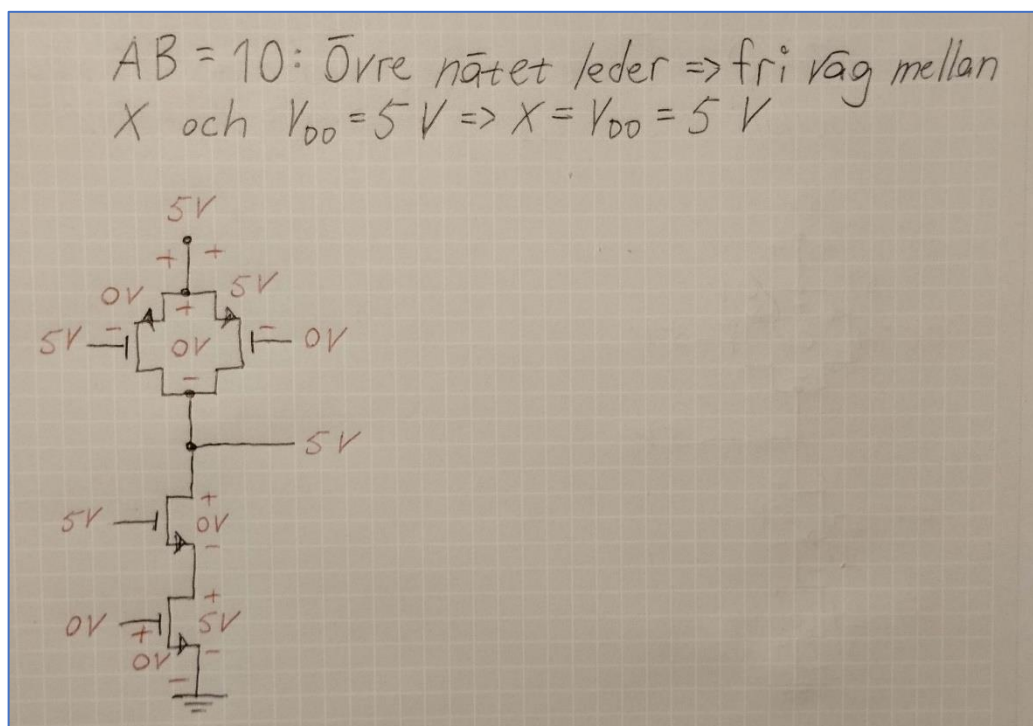 AB = 10: Övre nätet leder => fri väg mellan
X och VDD = 5 V => X = VDD = 5 V
5V
+ +
0V 5V
+
5V - 0V - 0V
-
5V
+
5V 0V
-
+
0V + 5V
0V -
-